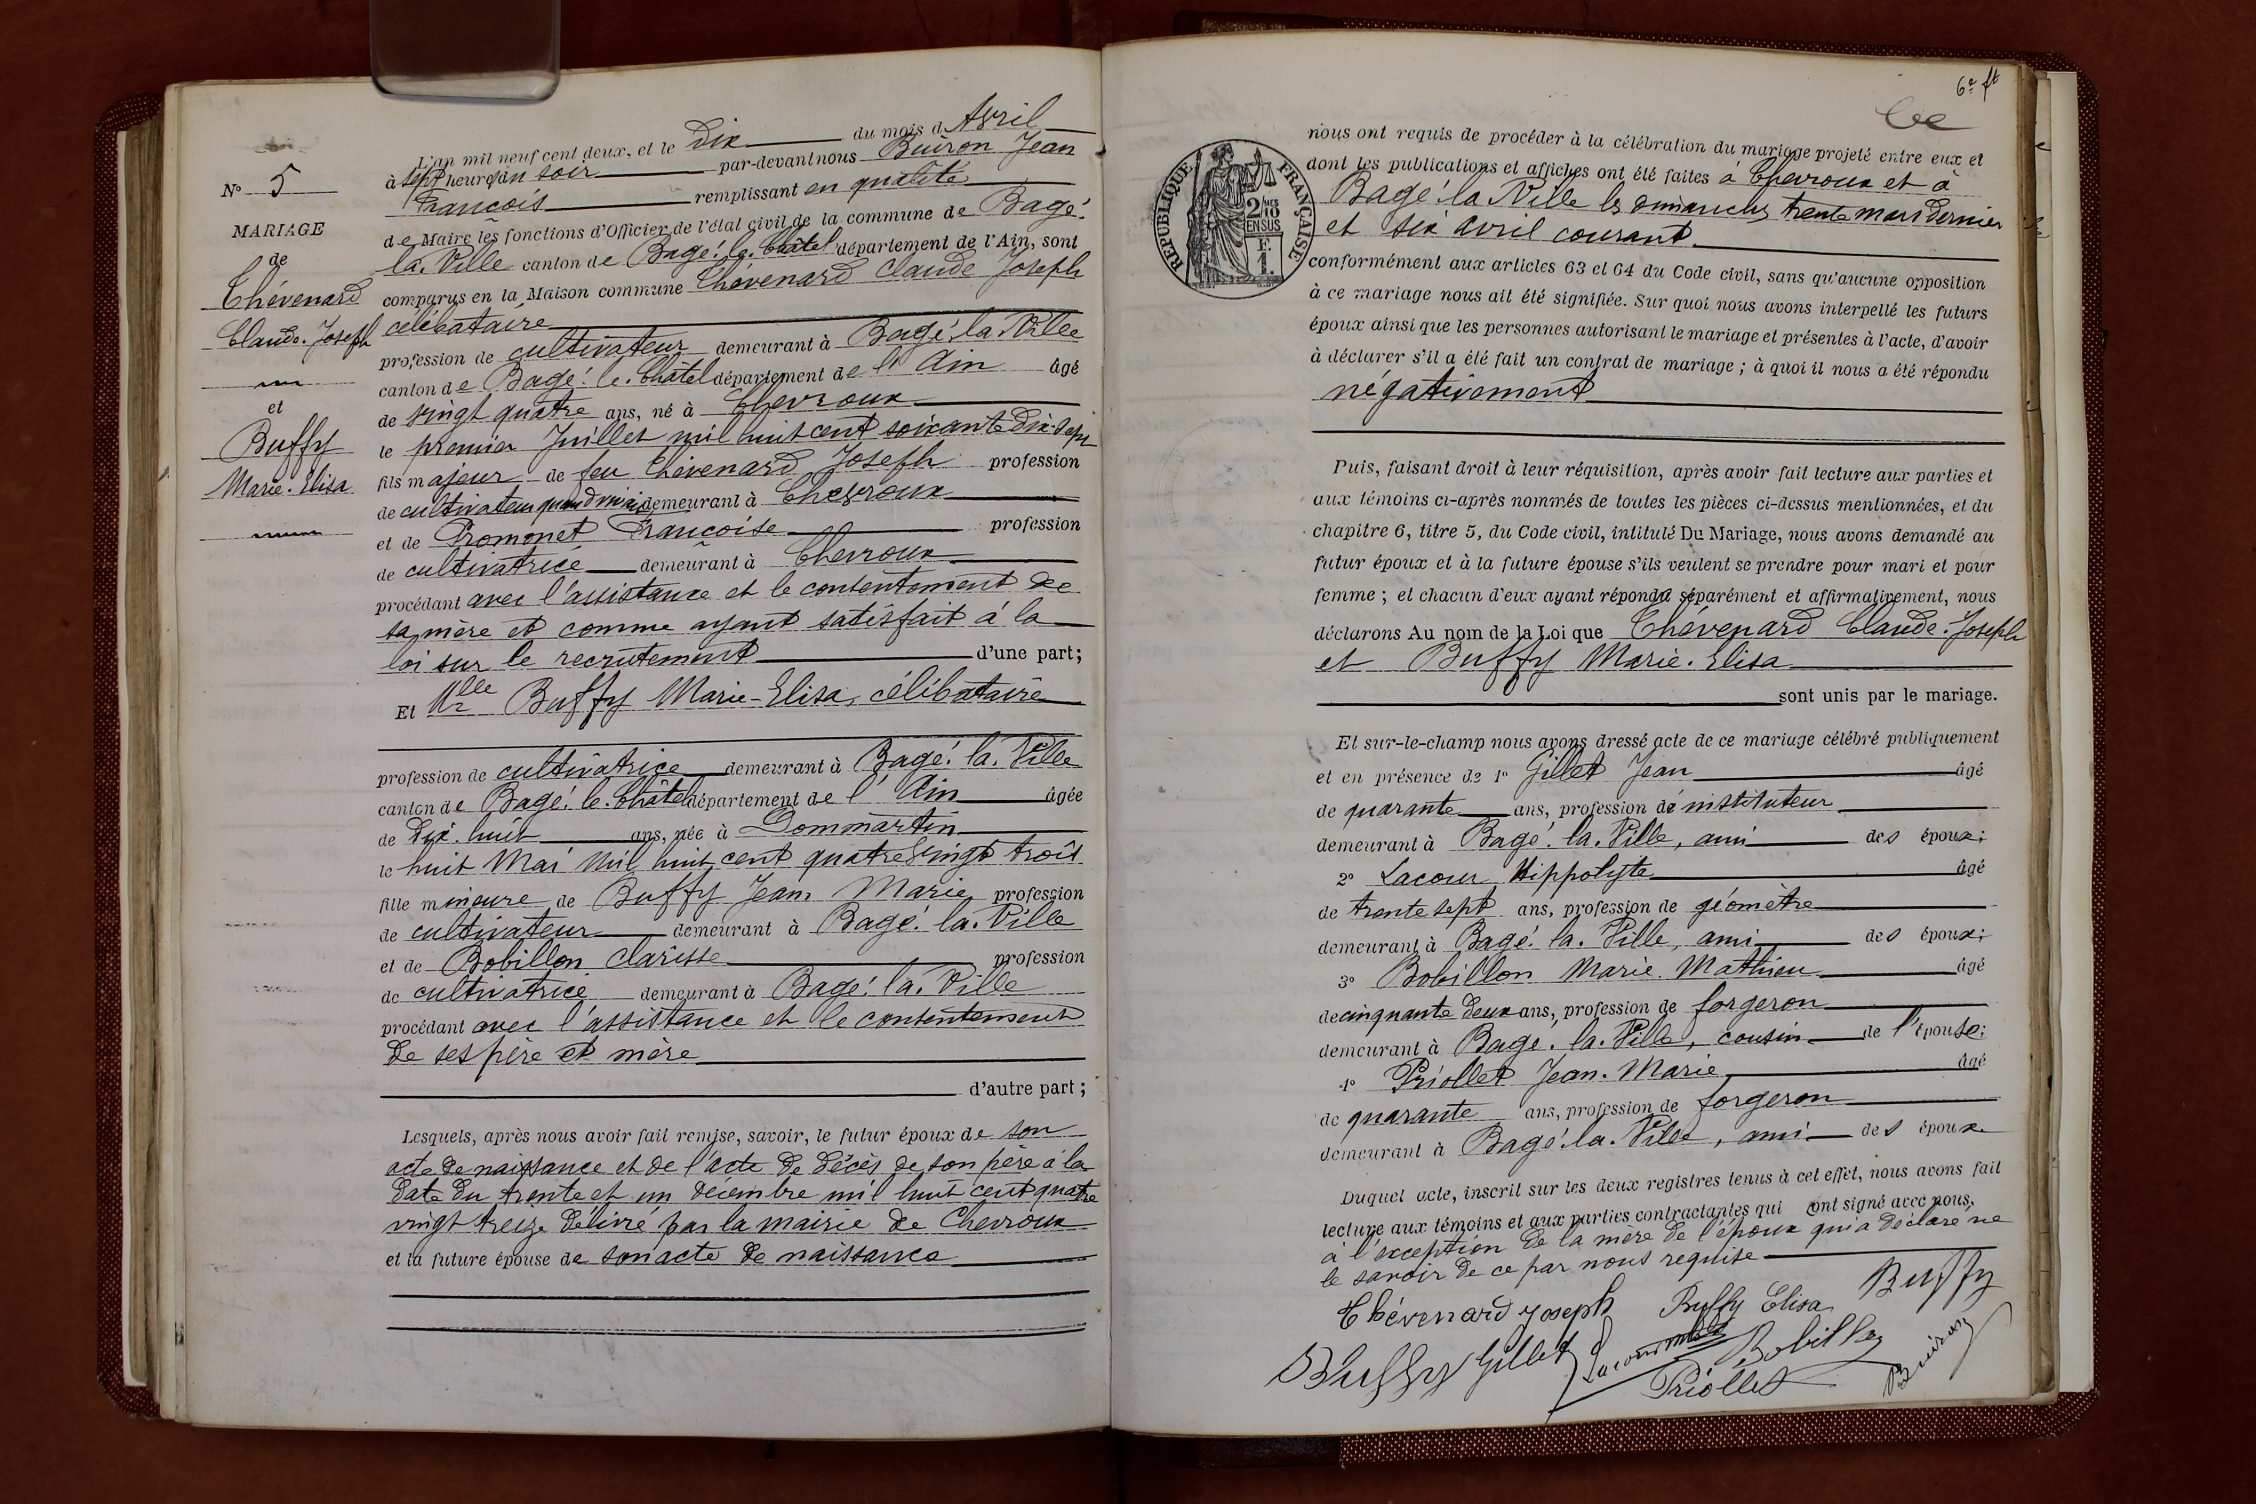 N° 5
MARIAGE
de
Chévenard
Claude. Joseph
et
Buffy
Marie. Elisa
L'an mil neuf cent deux, et le Dix du mois d'Avril
à sept heures du soir par-devant nous Buiron Jean
François remplissant en qualité
de Maire les fonctions d'Officier de l'état civil de la commune de Bagé.
la. Ville canton de Bagé. le. Châtel département de l'Ain, sont
comparus en la Maison commune Chévenard Claude Joseph
célibataire
profession de cultivateur demeurant à Bagé. la. Ville
canton de Bagé. le. Châtel département de l'Ain âgé
de vingt quatre ans, né à Chevroux
le premier Juillet mil huit cent soixante Dix-sept
fils majeur de feu Chévenard Joseph profession
de cultivateur quand vivait demeurant à Chevroux
et de Promonet Françoise profession
de cultivatrice demeurant à Chevroux
procédant avec l'assistance et le consentement de
sa mère et comme ayant satisfait à la
loi sur le recrutement d'une part;
Et Mlle Buffy Marie-Elisa, célibataire
profession de cultivatrice demeurant à Bagé. la. Ville
canton de Bagé. le. Châtel département de l'Ain âgée
de Dix. huit ans, née à Dommartin
le huit Mai mil huit cent quatre vingt trois
fille mineure de Buffy Jean Marie profession
de cultivateur demeurant à Bagé. la. Ville
et de Bobillon Clarisse profession
de cultivatrice demeurant à Bagé. la. Ville
procédant avec l'assistance et le consentement
de ses père et mère
d'autre part;
Lesquels, après nous avoir fait remise, savoir, le futur époux de son
acte de naissance et de l'acte de décès de son père à la
date du trente et un décembre mil huit cent quatre
vingt treize délivré par la mairie de Chevroux
et la future épouse de son acte de naissance
6e ft
RÉPUBLIQUE FRANÇAISE
2/10 MES
EN SUS
F.
1.
nous ont requis de procéder à la célébration du mariage projeté entre eux et
dont les publications et affiches ont été faites à Chevroux et à
Bagé. la Ville les dimanches trente mars dernier
et six avril courant.
conformément aux articles 63 et 64 du Code civil, sans qu'aucune opposition
à ce mariage nous ait été signifiée. Sur quoi nous avons interpellé les futurs
époux ainsi que les personnes autorisant le mariage et présentes à l'acte, d'avoir
à déclarer s'il a été fait un contrat de mariage; à quoi il nous a été répondu
négativement
Puis, faisant droit à leur réquisition, après avoir fait lecture aux parties et
aux témoins ci-après nommés de toutes les pièces ci-dessus mentionnées, et du
chapitre 6, titre 5, du Code civil, intitulé Du Mariage, nous avons demandé au
futur époux et à la future épouse s'ils veulent se prendre pour mari et pour
femme; et chacun d'eux ayant répondu séparément et affirmativement, nous
déclarons Au nom de la Loi que Chévenard Claude. Joseph
et Buffy Marie. Elisa
sont unis par le mariage.
Et sur-le-champ nous avons dressé acte de ce mariage célébré publiquement
et en présence de 1° Gillet Jean âgé
de quarante ans, profession de instituteur
demeurant à Bagé. la. Ville, ami des époux;
2° Lacour Hippolyte âgé
de trente sept ans, profession de géomètre
demeurant à Bagé. la. Ville, ami des époux;
3° Bobillon Marie. Mathieu âgé
de cinquante deux ans, profession de forgeron
demeurant à Bagé. la. Ville, cousin de l'épouse;
4° Priollet Jean. Marie âgé
de quarante ans, profession de forgeron
demeurant à Bagé. la. Ville, ami des époux
Duquel acte, inscrit sur les deux registres tenus à cet effet, nous avons fait
lecture aux témoins et aux parties contractantes qui ont signé avec nous,
à l'exception de la mère de l'époux qui a déclaré ne
le savoir de ce par nous requise
Chévenard Joseph Buffy Elisa Buffy
Buffy Gillet Lacour Bobillon Buiron
Priollet